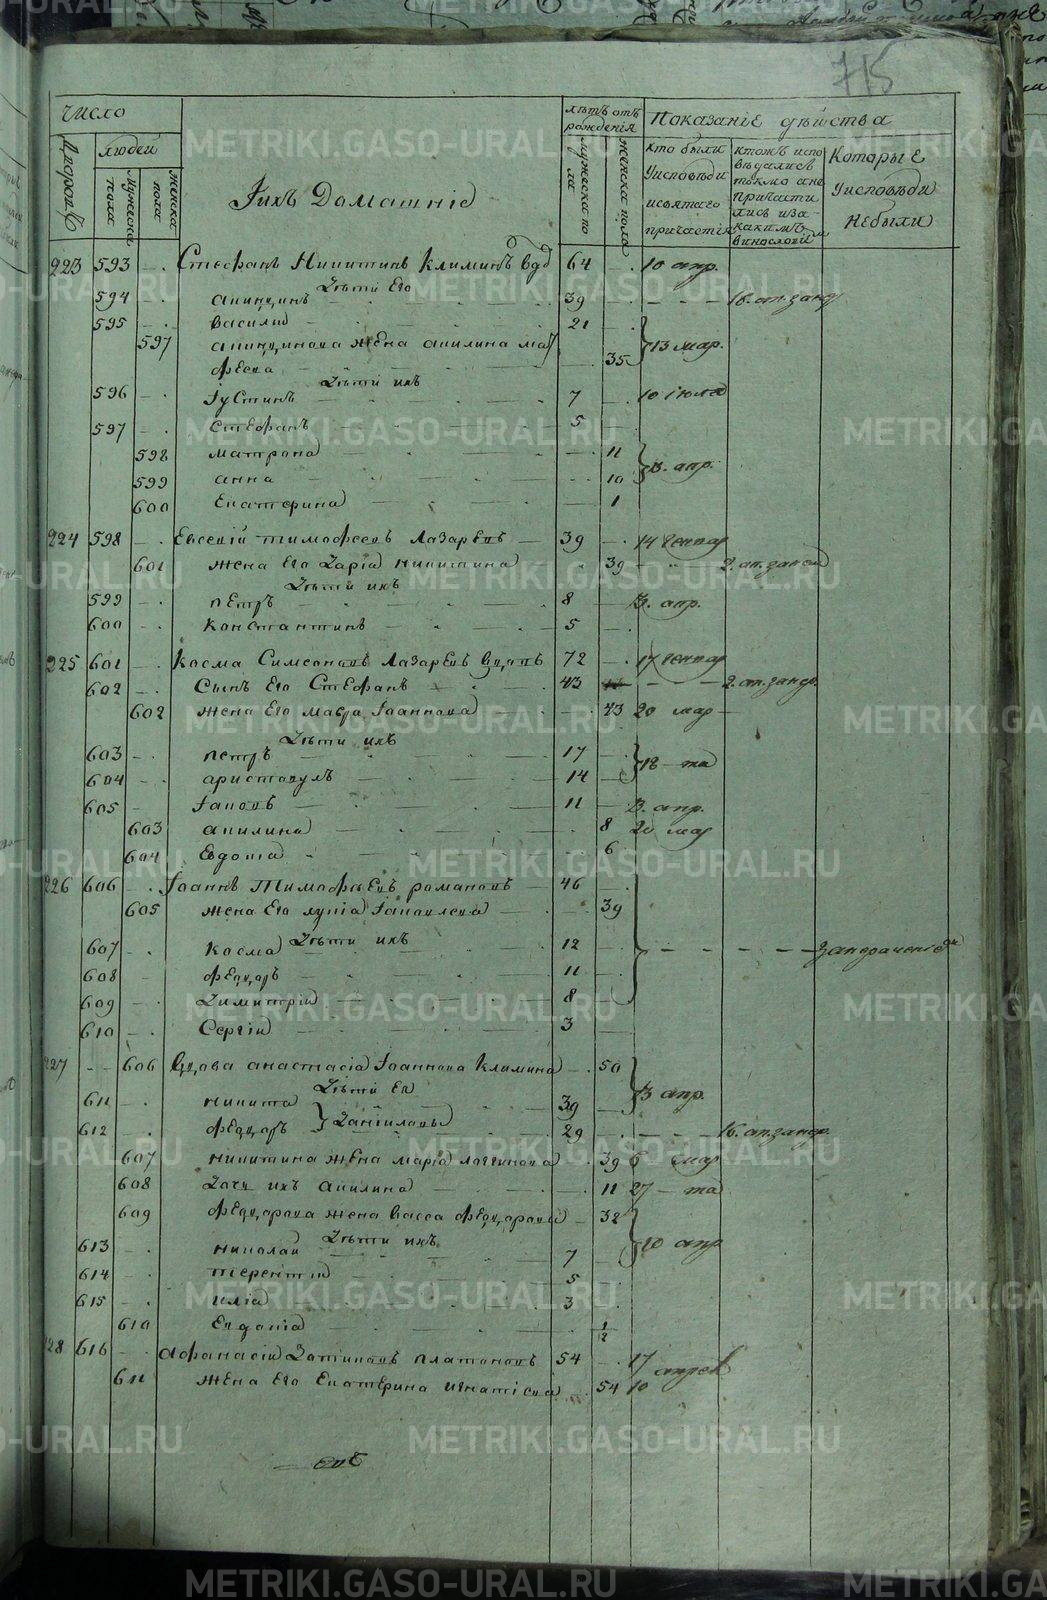 715
число
Дворовъ
людей
Мужеска пола
женска пола
Iихъ Домашнiе
лѣтъ отъ рожденiя
мужеска по ла
женска пола
Показанiе дѣйства
кто были Уисповѣди исвятаго причастiя
ктожъ испо вѣдались токмо ане причасти лись иза какимъ винословiем
Которые Уисповѣди Небыли
223 593 Стефанъ Никитинъ Климинъ вдв 64 10 апр.
Дѣти Его
594 39 16. ап. занд
595 Василiй 21
597 жена Акилина Мат 13 мар.
феева 35
Дѣти ихъ
596 Iустинъ 7 10 iюля
597 Стефанъ 5
598 Матрона 11
599 Анна 10 13. апр.
600 Екатерина 1
224 598 Евсевiй Тимофеевъ Лазаревъ 39 14 генвар
601 жена Его Дарiя Никитина 39 2. ап.
Дѣти ихъ
599 Петръ 8 13. апр.
600 Константинъ 5
225 601 Косма Симеоновъ Лазаревъ вдовъ 72 17 генвар
602 Сынъ Его Стефанъ 43 2. ап.
602 жена Его Мавра Iоаннова 43 20 мар
Дѣти ихъ
603 Петръ 17 18 та
604 Аристовулъ 14
605 Iаковъ 11 13. апр.
603 Акилина 8 20 мар
604 Евдокiа 6
226 606 Iоаннъ Тимофѣевъ Романовъ 46
605 жена Его Iаковлева 39
Дѣти ихъ
607 Косма 12
608 Феодоръ 11
609 Димитрiй 8
610 Сергiй 3
227 606 Вдова Анастасiя Iоаннова Климина 50
Дѣти Ея
611 Никита 39 13 апр.
612 Феодоръ Данiиловы 29 16. ап.
607 Никитина жена Марiя Логгинова 39 6 мар
608 Дочь ихъ Акилина 11 27 та
609 Феодорова жена Васса Феодорова 32
Дѣти ихъ
613 Николай 7 20 апр
614 Терентiй 5
615 Илiя 3
610 Евдокiа 1/2
228 616 Афанасiй Платоновъ 54 17 апреля
611 жена Его Екатерина Игнатiева 54 10
METRIKI.GASO-URAL.RU